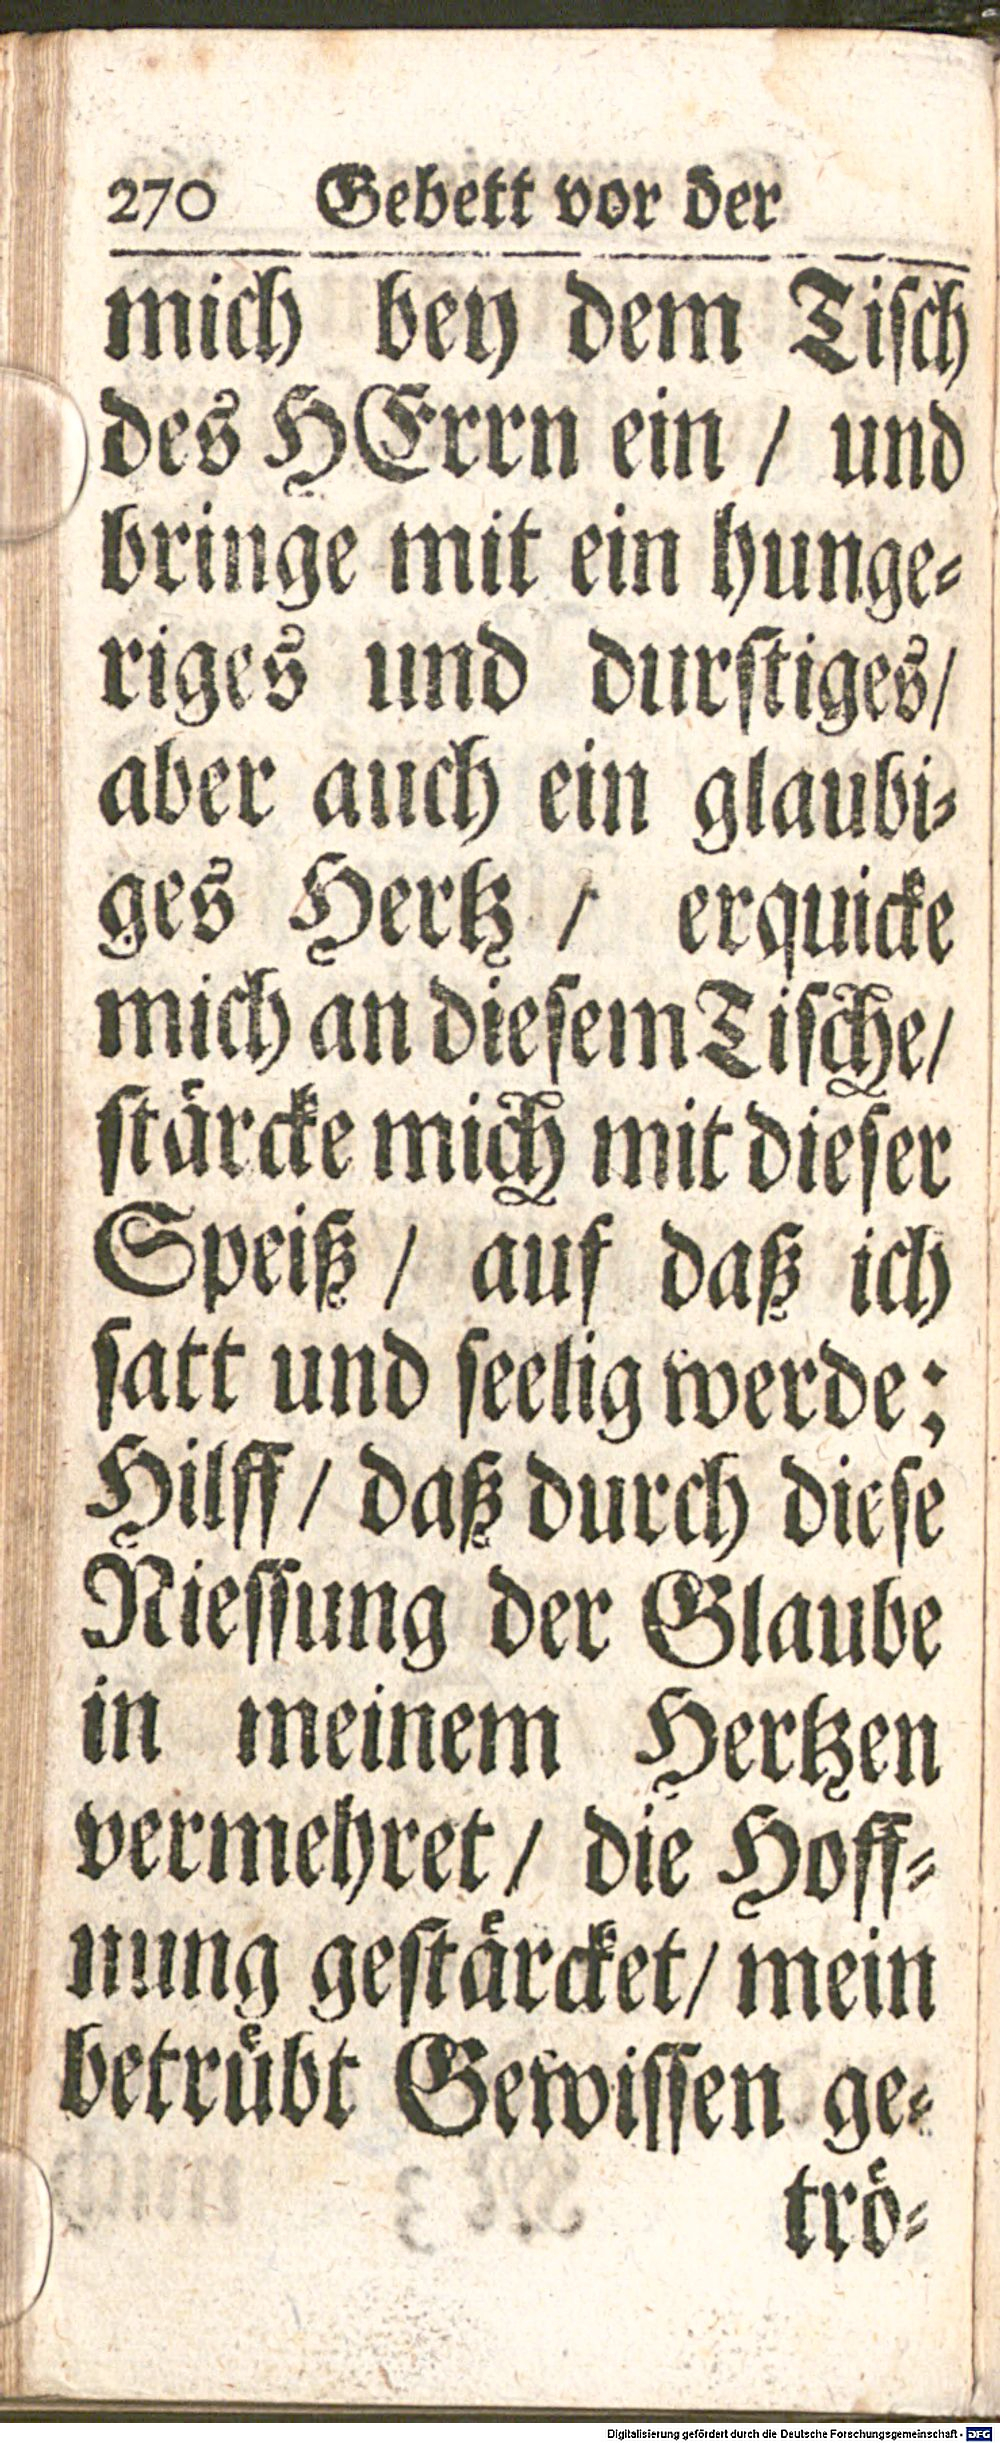 270 Gebett vor der
mich bey dem Tisch
des HErrn ein / und
bringe mit ein hunge⸗
riges und durstiges/
aber auch ein glaubi⸗
ges Hertz / erquicke
mich an diesem Tische/
stärcke mich mit dieser
Speiß / auf daß ich
satt und seelig werde;
Hilff / daß durch diese
Niessung der Glaube
in meinem Hertzen
vermehret / die Hoff⸗
nung gestärcket / mein
betrübt Gewissen ge⸗
trö⸗
Digitalisierung gefördert durch die Deutsche Forschungsgemeinschaft - DFG